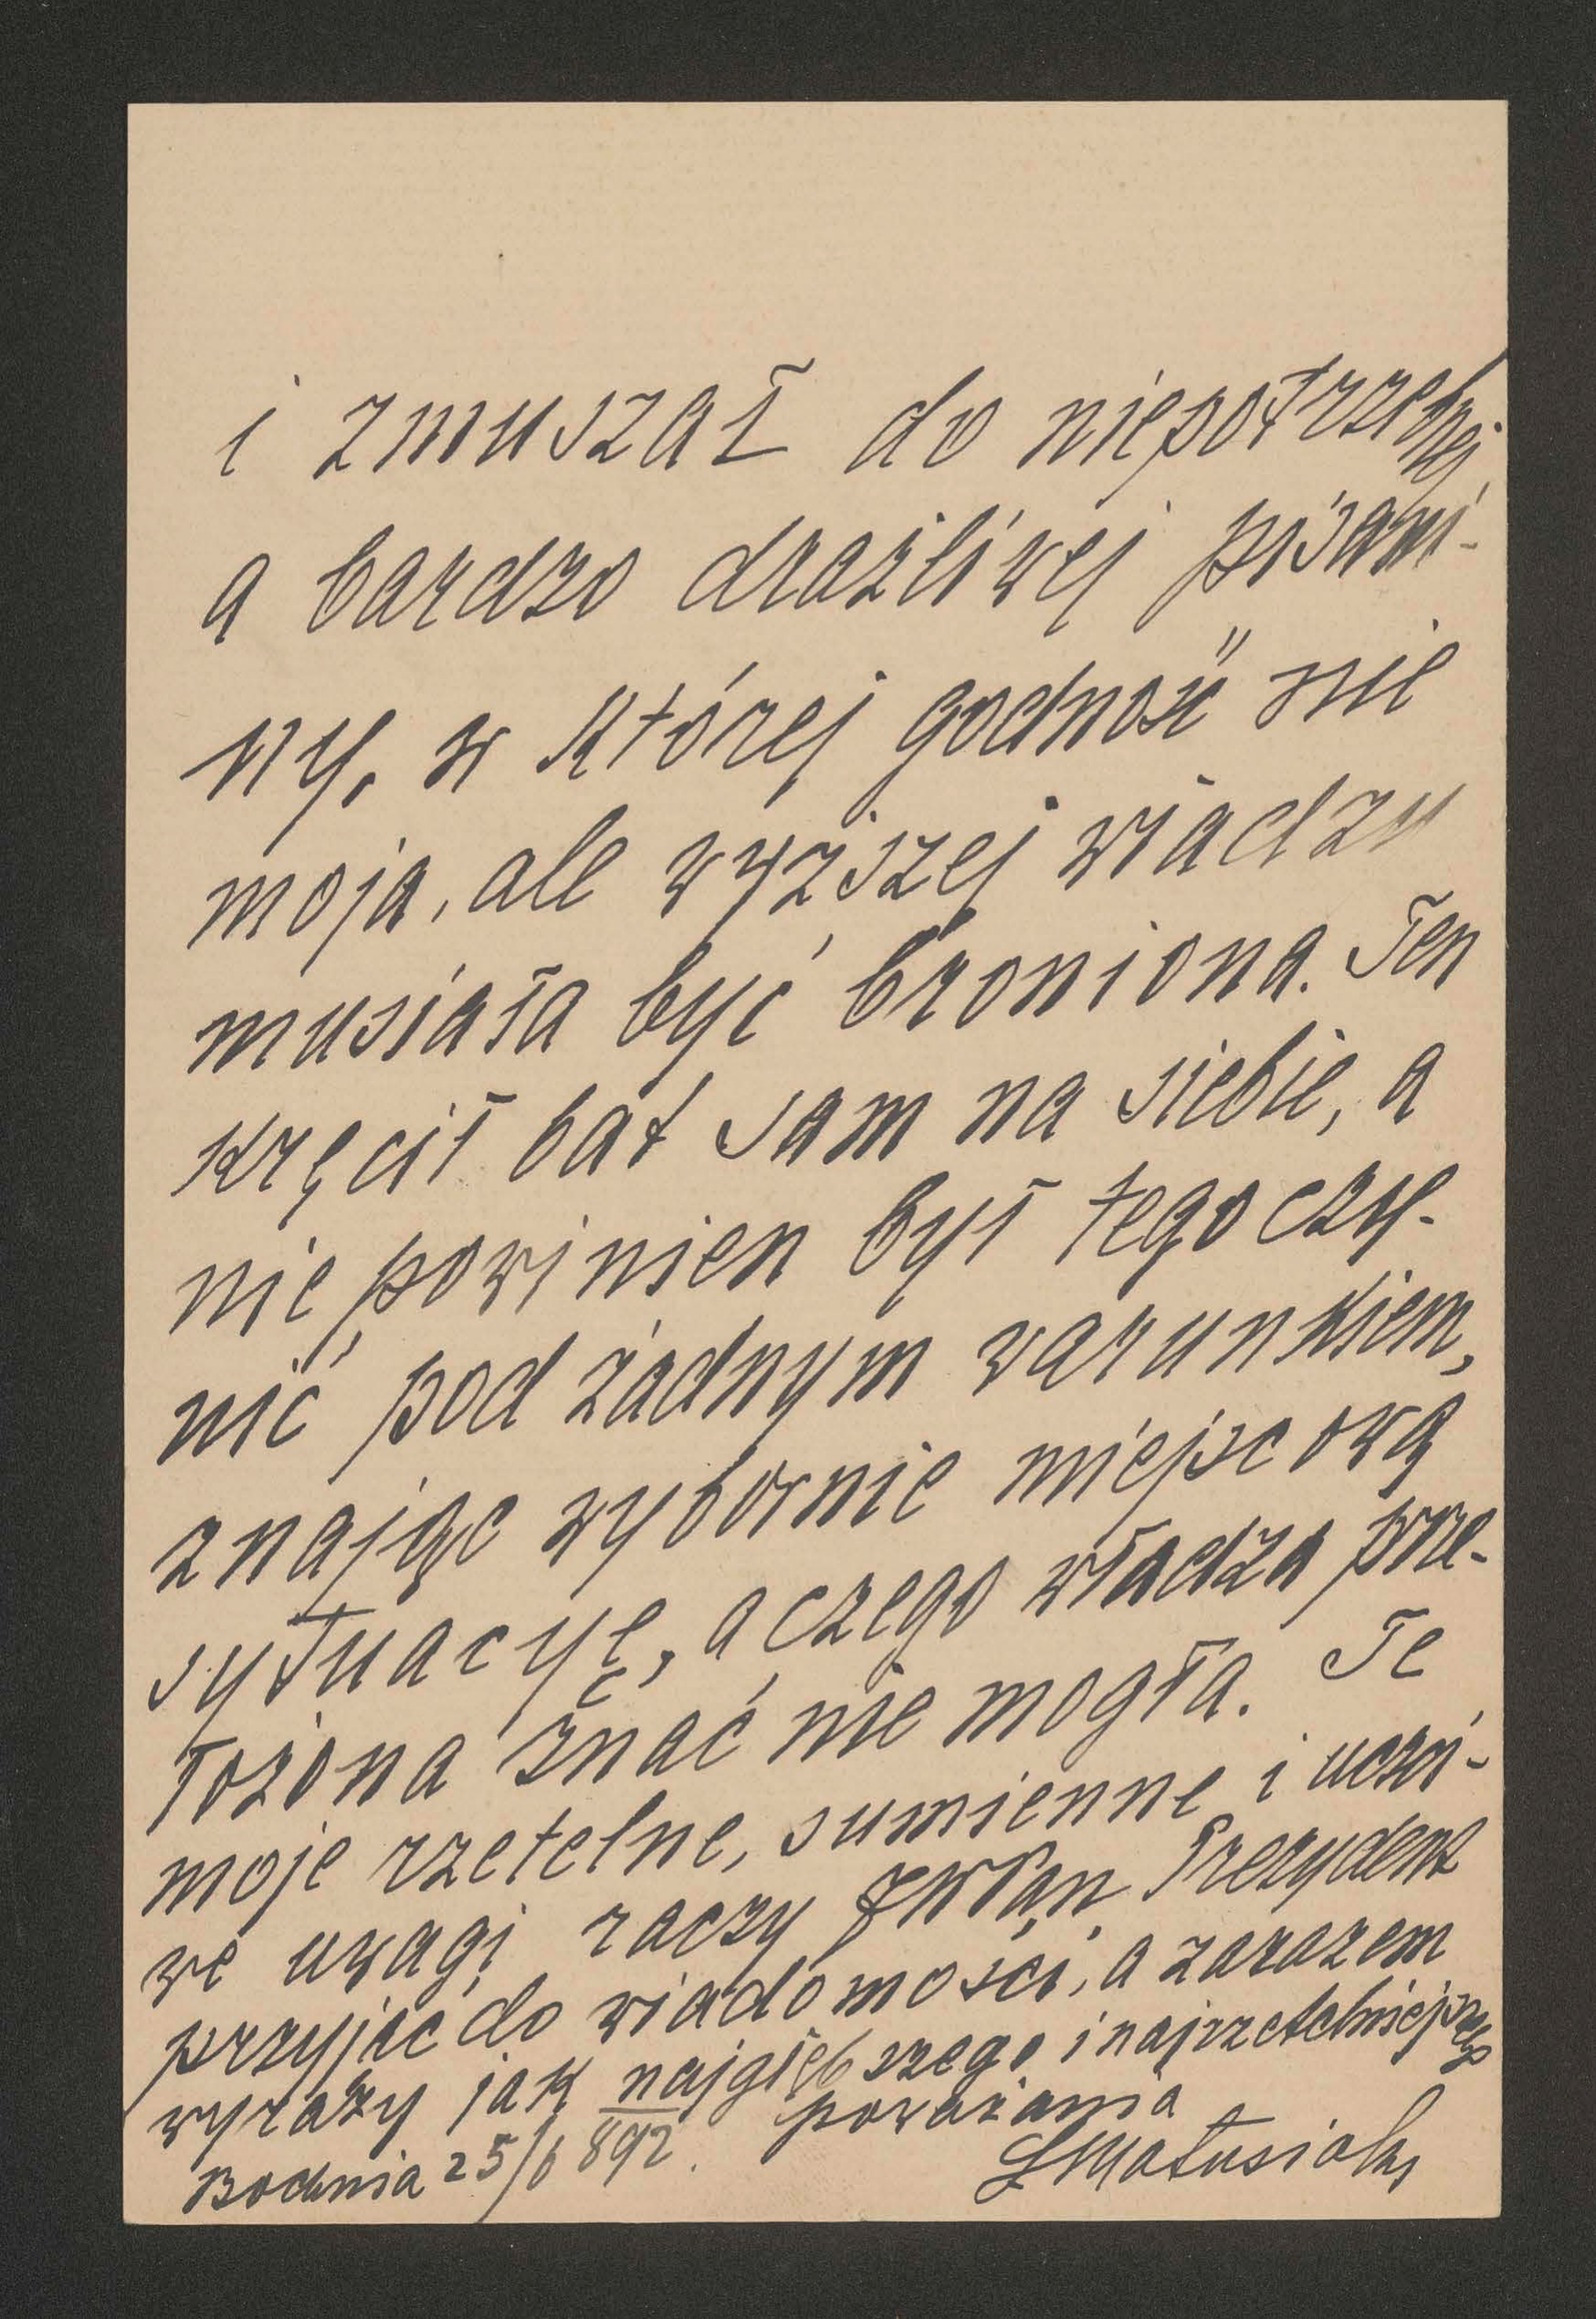 i zmuszał do niepotrzebnej
a bardzo drażliwej pisani-
ny, w której godność nie
moja, ale wyższej władzy
musiała być broniona. Ten
kręcił bat sam na siebie, a
nie powinien był tego czy-
nić pod żadnym warunkiem,
znając wybornie miejscową
sytuacyę, a czego władza prze-
łożona znać nie mogła. Te
moje rzetelne, sumienne i uczci-
we uwagi raczy JWPan Prezydent
przyjąć do wiadomości, a zarazem
wyrazy jak najgłębszego i najrzetelniejszego
poważania
Bochnia 25/6 892.
Matusiak